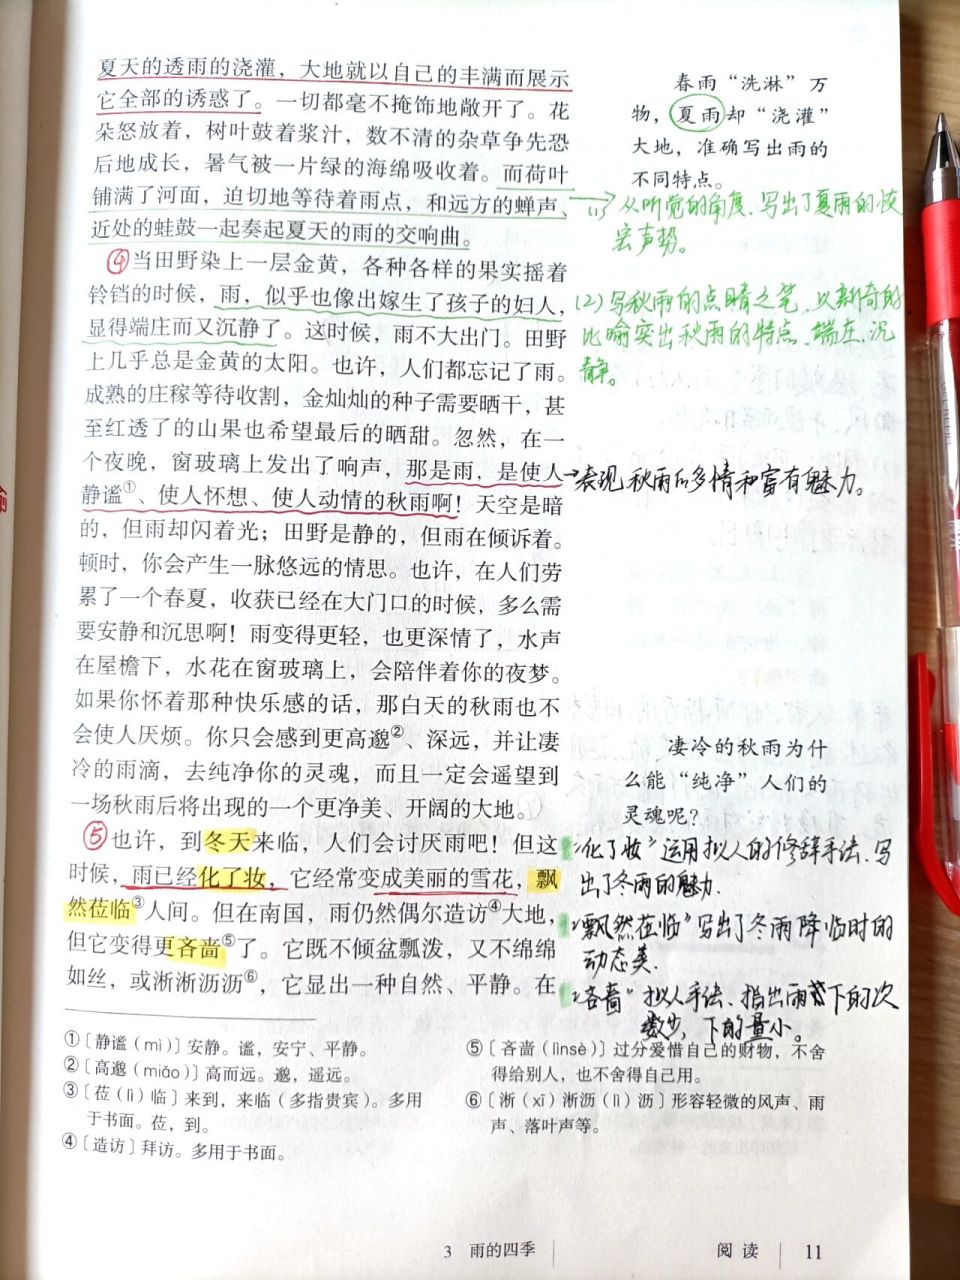 夏天的透雨的浇灌，大地就以自己的丰满而展示
它全部的诱惑了。一切都毫不掩饰地敞开了。花
朵怒放着，树叶鼓着浆汁，数不清的杂草争先恐
后地成长，暑气被一片绿的海绵吸收着。而荷叶
铺满了河面，迫切地等待着雨点，和远方的蝉声、
近处的蛙鼓一起奏起夏天的雨的交响曲。
④当田野染上一层金黄，各种各样的果实摇着
铃铛的时候，雨，似乎也像出嫁生了孩子的妇人，
显得端庄而又沉静了。这时候，雨不大出门。田野
上几乎总是金黄的太阳。也许，人们都忘记了雨。
成熟的庄稼等待收割，金灿灿的种子需要晒干，甚
至红透了的山果也希望最后的晒甜。忽然，在一
个夜晚，窗玻璃上发出了响声，那是雨，是使人
静谧①、使人怀想、使人动情的秋雨啊！天空是暗
的，但雨却闪着光；田野是静的，但雨在倾诉着。
顿时，你会产生一脉悠远的情思。也许，在人们劳
累了一个春夏，收获已经在大门口的时候，多么需
要安静和沉思啊！雨变得更轻，也更深情了，水声
在屋檐下，水花在窗玻璃上，会陪伴着你的夜梦。
如果你怀着那种快乐感的话，那白天的秋雨也不
会使人厌烦。你只会感到更高邈②、深远，并让凄
冷的雨滴，去纯净你的灵魂，而且一定会遥望到
一场秋雨后将出现的一个更净美、开阔的大地。
⑤也许，到冬天来临，人们会讨厌雨吧！但这
时候，雨已经化了妆，它经常变成美丽的雪花，飘
然莅临③人间。但在南国，雨仍然偶尔造访④大地，
但它变得更吝啬⑤了。它既不倾盆瓢泼，又不绵绵
如丝，或淅淅沥沥⑥，它显出一种自然、平静。在
春雨“洗淋”万
物，夏雨却“浇灌”
大地，准确写出雨的
不同特点。
(1)从听觉的角度、写出了夏雨的恢
宏声势。
(2)写秋雨的点睛之笔、以新奇的
比喻突出秋雨的特点、端庄、沉
静。
→表现秋雨的多情和富有魅力。
凄冷的秋雨为什
么能“纯净”人们的
灵魂呢？
“化了妆”运用拟人的修辞手法、写
出了冬雨的魅力.
“飘然莅临”写出了冬雨降临时的
动态美.
“吝啬”拟人手法、指出雨下的次
数少，下的量小。
①〔静谧（mì）〕安静。谧，安宁、平静。
②〔高邈（miǎo）〕高而远。邈，遥远。
③〔莅（lì）临〕来到，来临（多指贵宾）。多用
于书面。莅，到。
④〔造访〕拜访。多用于书面。
⑤〔吝啬（lìnsè）〕过分爱惜自己的财物，不舍
得给别人，也不舍得自己用。
⑥〔淅（xī）淅沥（lì）沥〕形容轻微的风声、雨
声、落叶声等。
3 雨的四季
阅读 11